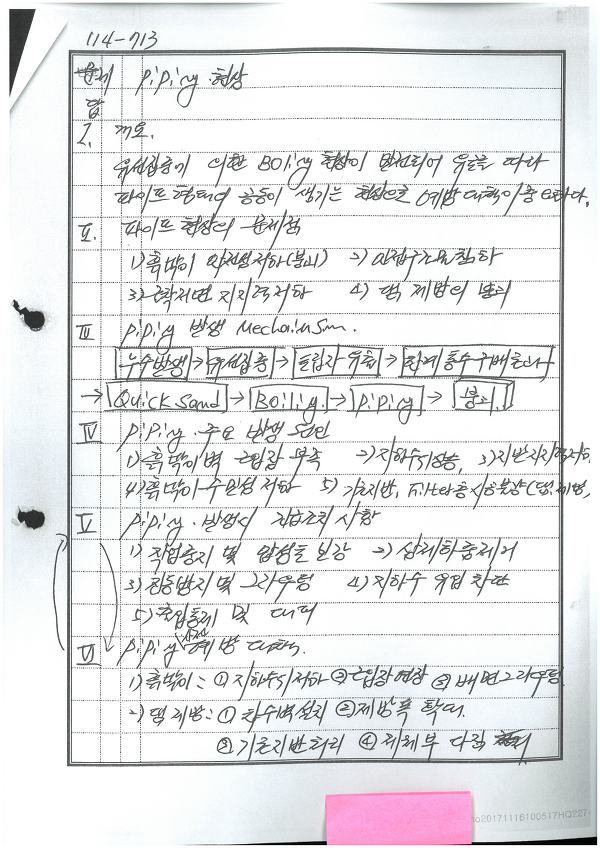 114-713
문제 Piping 현상
답
I. 개요.
유선집중에 의한 Boiling 현상이 발전되어 유로를 따라
파이프 형태의 공동이 생기는 현상으로 예방 대책이 중요하다.
II. 파이프 현상의 문제점
1) 흙막이 안전성 저하(붕괴) 2) 인접구조물 침하
3) 굴착저면 지지력저하 4) 댐, 제방의 붕괴
III Piping 발생 Mechainsm.
누수발생 → 유선집중 → 토립자 유출 → 한계동수구배초과
→ Quick Sand → Boiling → Piping → 붕괴.
IV Piping 주요 발생 원인
1) 흙막이벽 근입장 부족 2) 지하수위상승, 3) 지반지지력저하.
4) 흙막이 수밀성 저하 5) 기초지반, Filter층 시공불량(댐,제방,
V Piping 발생시 긴급조치 사항
1) 작업중지 및 압성토 보강 2) 상재하중제거
3) 진동방지 및 그라우팅 4) 지하수 유입 차단
5) 출입통제 및 대피
VI Piping 사전 예방 대책.
1) 흙막이: ① 지하수위저하 ② 근입장 연장 ③ 배면그라우팅
2) 댐 제방: ① 차수벽설치 ② 제방폭 확대.
③ 기초지반처리 ④ 제체부 다짐
no20171116100517HQ227